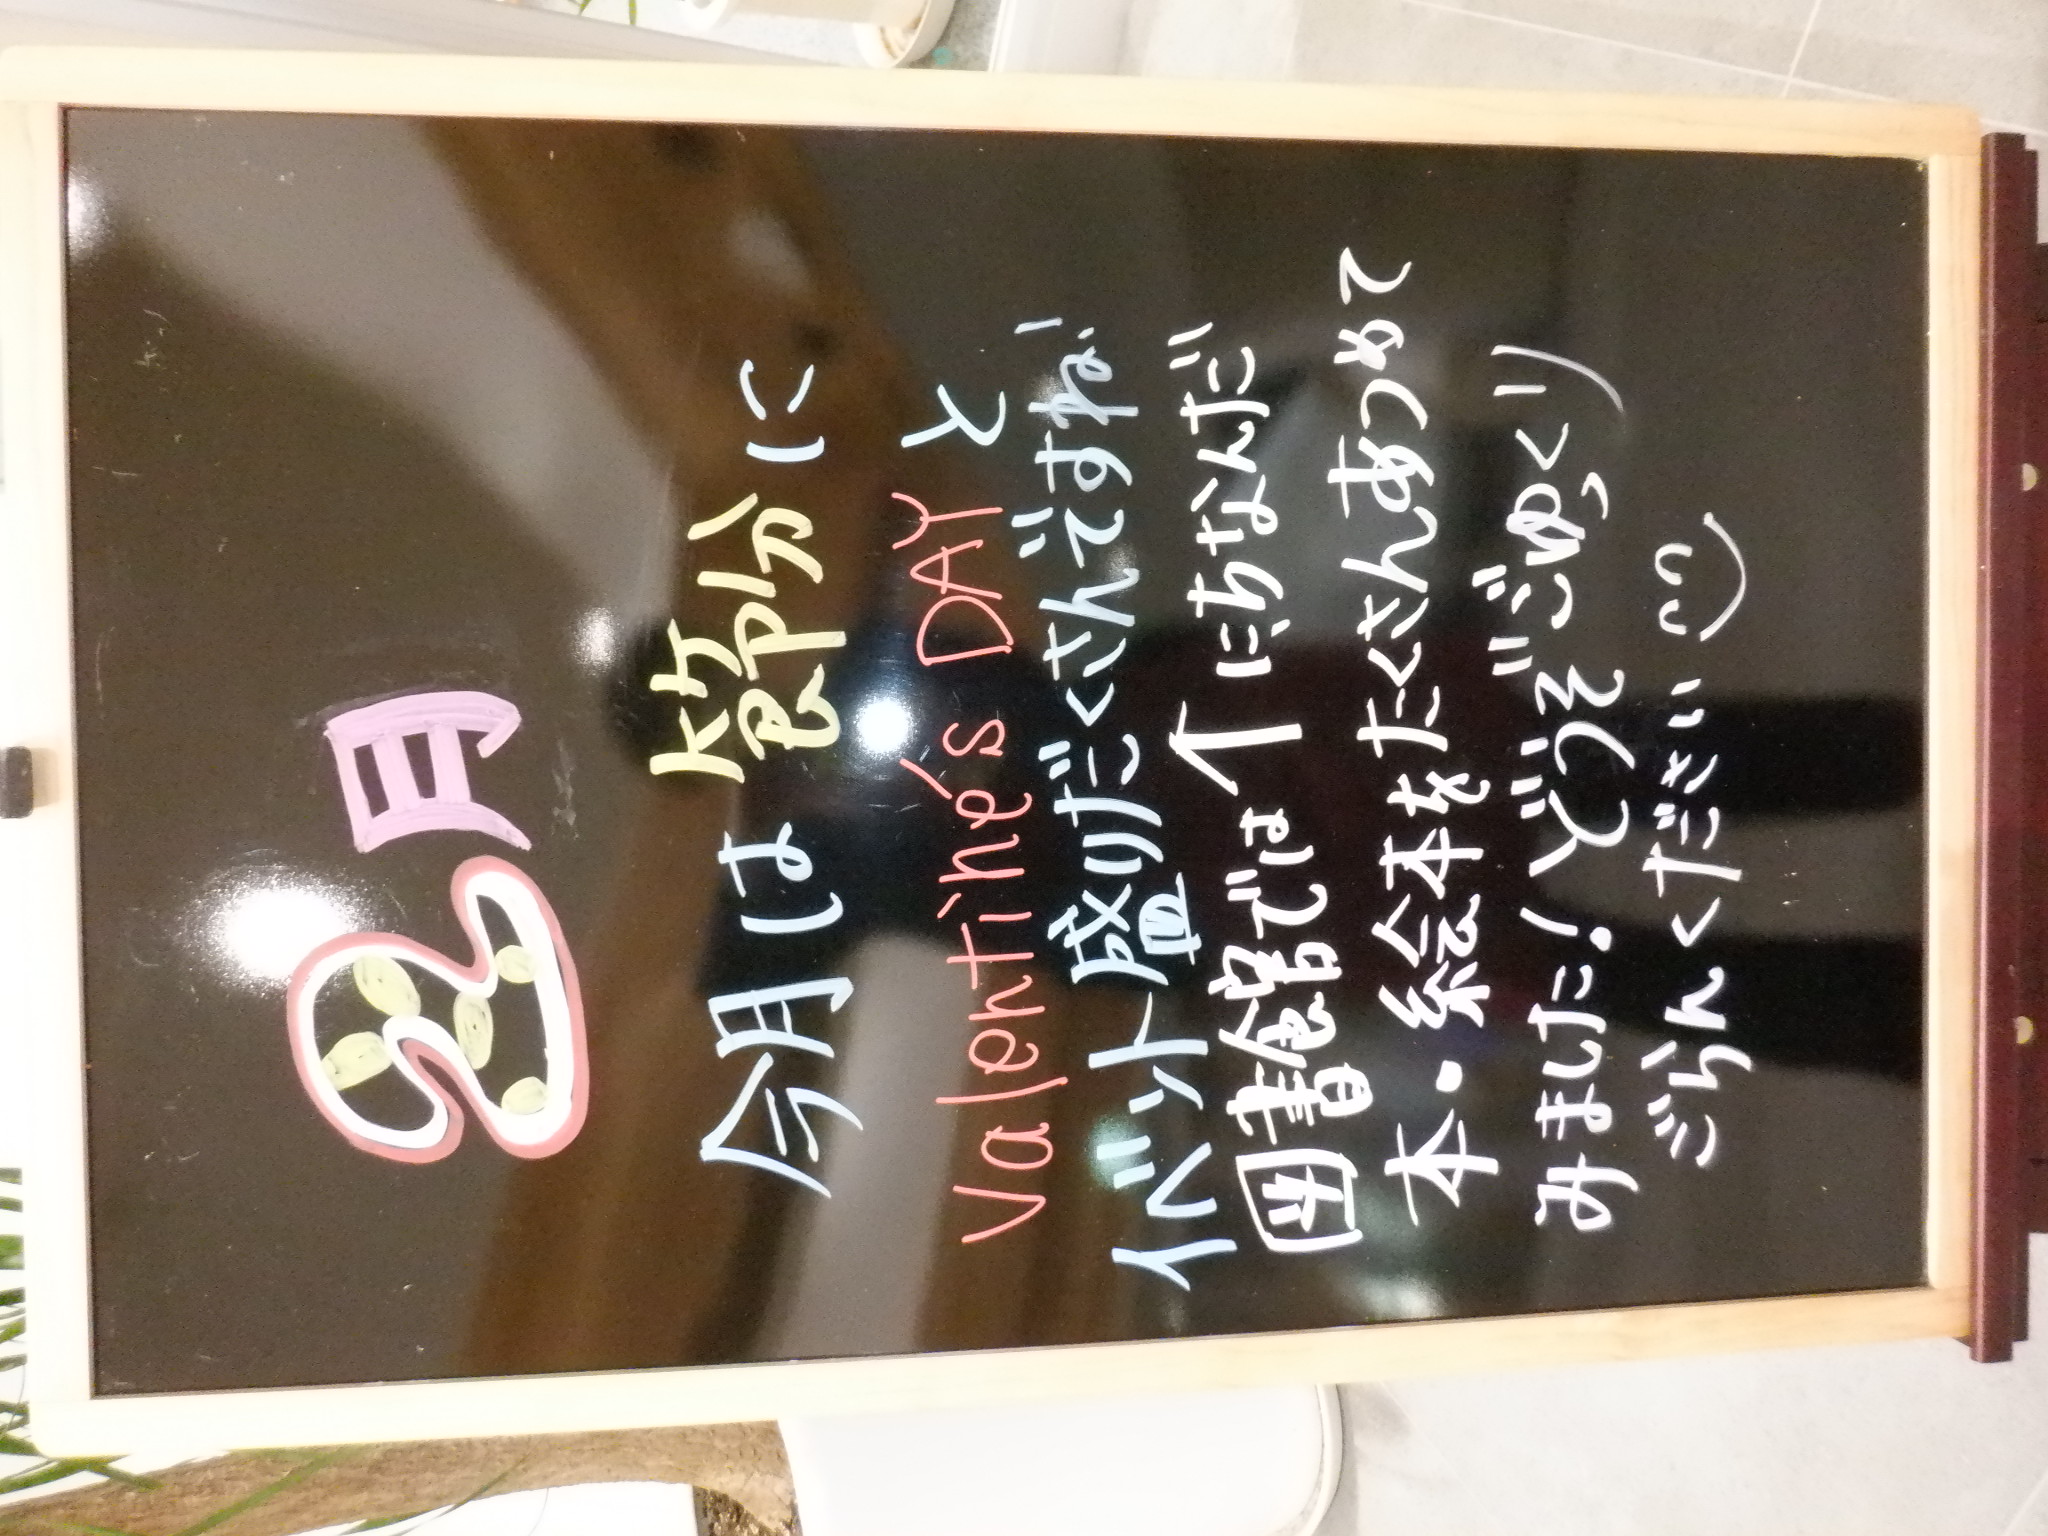 2月
今月は 節分に
Valentine's DAY と
イベント盛りだくさんですね!
図書館では↑にちなんだ
本・絵本をたくさんあつめて
みました!どうぞごゆっくり
ごらんください